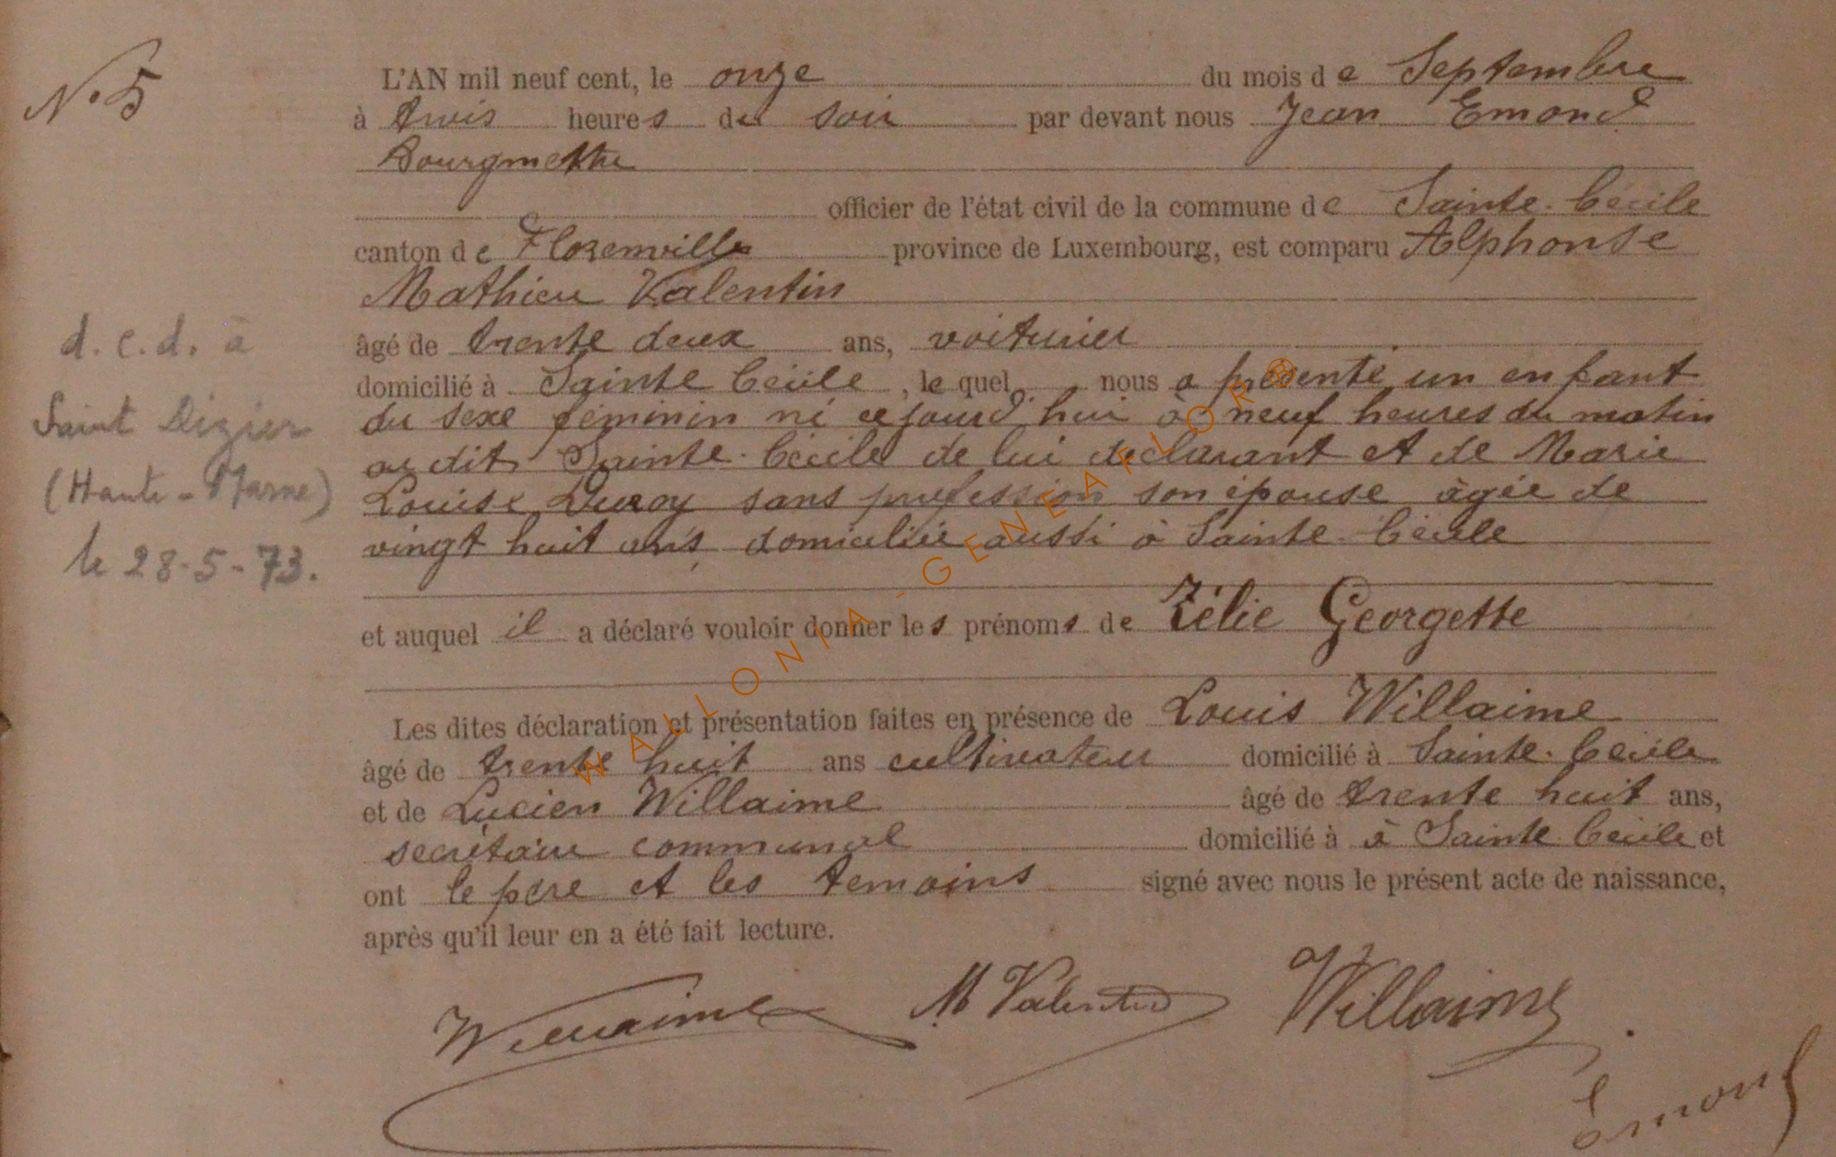 N° 5
L'AN mil neuf cent, le onze du mois de Septembre
à trois heures du soir par devant nous Jean Emond
Bourgmestre
officier de l'état civil de la commune de Sainte-Cécile
canton de Florenville province de Luxembourg, est comparu Alphonse
Mathieu Valentin
âgé de trente deux ans, voiturier
domicilié à Sainte Cécile, lequel nous a présenté un enfant
du sexe féminin né cejourd'hui à neuf heures du matin
au dit Sainte-Cécile de lui déclarant et de Marie
Louise Duroy sans profession son épouse âgée de
vingt huit ans domiciliée aussi à Sainte-Cécile
et auquel il a déclaré vouloir donner les prénoms de Zélie Georgette
Les dites déclaration et présentation faites en présence de Louis Willaime
âgé de trente huit ans cultivateur domicilié à Sainte-Cécile
et de Lucien Willaime âgé de trente huit ans,
secrétaire communal domicilié à à Sainte Cécile et
ont le père et les témoins signé avec nous le présent acte de naissance,
après qu'il leur en a été fait lecture.
Willaime M Valentin Willaime
Emond
d.c.d. à
Saint Dizier
(Haute-Marne)
le 28-5-73.
WALLONIA-GENEAFLOR®